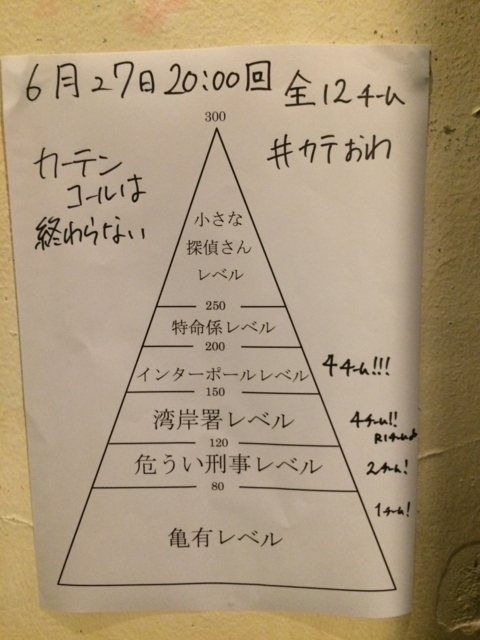 6月27日20:00回 全12チーム
#カテおわ
カーテン
コールは
終わらない
300
小さな
探偵さん
レベル
250
特命係レベル
200
インターポールレベル 4チーム!!!
150
湾岸署レベル 4チーム!!
120
危うい刑事レベル 2チーム!
80
1チーム!
亀有レベル